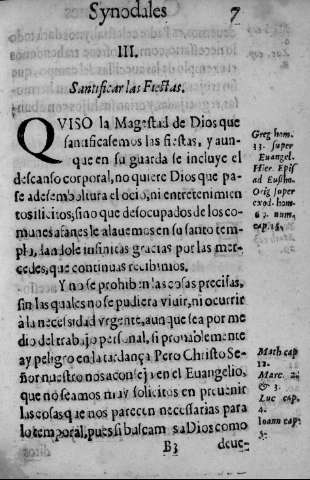 Synodales 7
III.
Santificar las Fiestas.
QVISO la Magestad de Dios que
santificasemos las fiestas, y aun-
que en su guarda se incluye el
descanso corporal, no quiere Dios que pa-
se a desemboltura el ocio, ni entretenimien
tos ilicitos, sino que desocupados de los co-
munes afanes le alavemos en su santo tem-
plo, dandole infinitas gracias por las mer-
cedes, que continuas recibimos.
Y no se prohiben las cosas precisas,
sin las quales no se pudiera vivir, ni ocurrir
à la necessidad vrgente, aunque sea por me
dio del trabajo personal, si probablemente
ay peligro en la tardança. Pero Christo Se-
ñor nuestro nos aconseja en el Euangelio,
que no seamos muy solicitos en preuenir
las cosas que nos parecen necessarias para
lo temporal, pues si buscam̃ s a Dios como
B3 deue-
Greg hom.
33. super
Euangel.
Hier. Epis
ad Eustha.
Orig super
exod. hom-
6 . num.
cap.
Math cap
12.
Marc. 2.
& 3.
Luc cap.
4.
Ioann cap.
5.